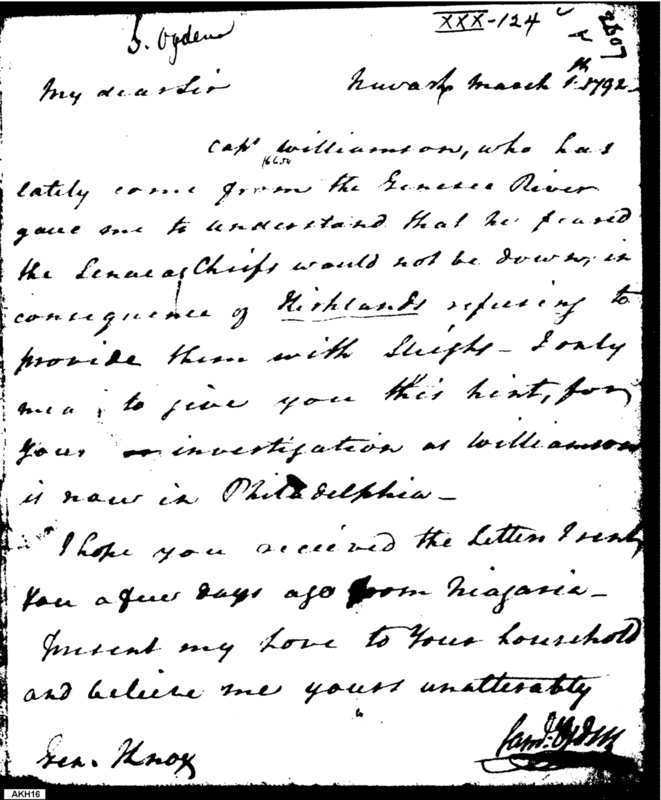 S. Ogden
XXX-124
2607
My dear Sir Newark March 1792
Capt Williamson, who has
lately come from the Genesee River
gave me to understand that he feared
the Seneca Chiefs would not be down, in
consequence of Kirklands refusing to
provide them with Sleighs - I only
mean to give you this hint, for
your investigation as Williamson
is now in Philadelphia -
I hope you received the Letter I sent
you a few days ago from Niagaria -
Present my Love to Your household
and believe me yours unalterably
Saml. Ogden
Gen. Knox
AKH16